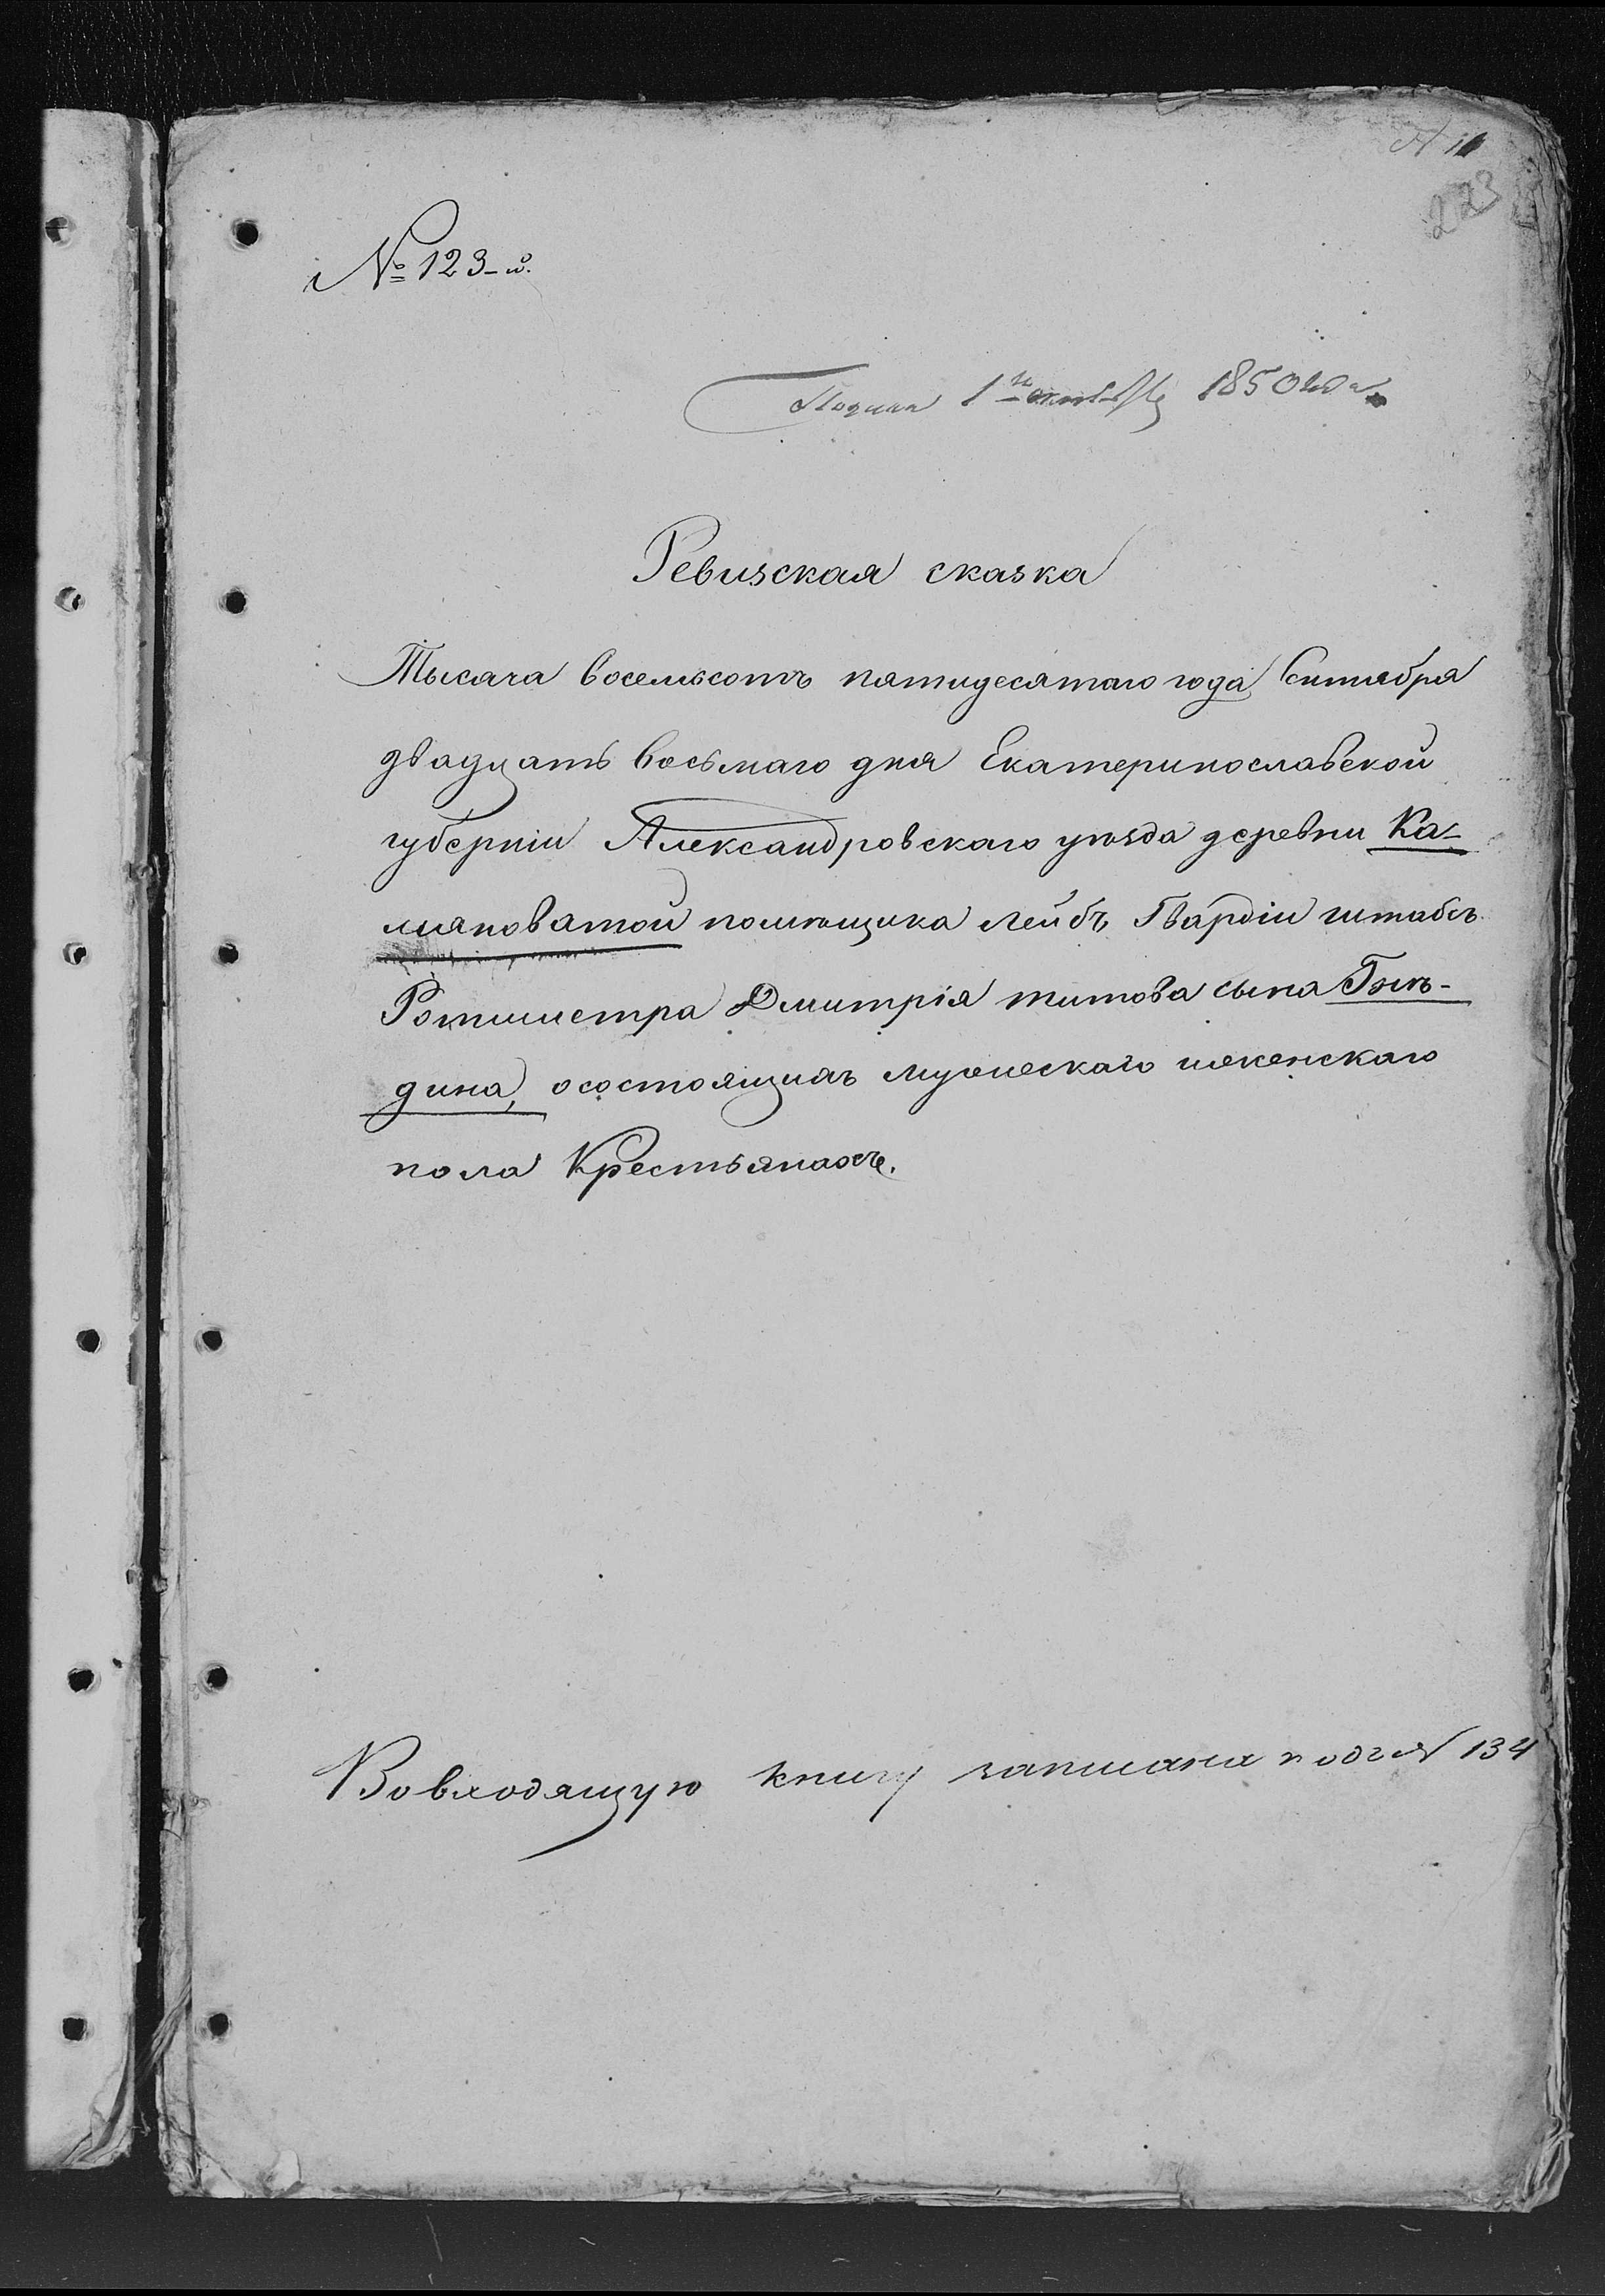 223
№ 123-й.
Подана 1го октября 1850 года
Ревизская сказка
Тысяча восемьсотъ пятидесятаго года Сентября
двадцать восьмаго дня Екатеринославской
губерніи Александровскаго уѣзда деревни Ка-
мяноватой помѣщика Лейбъ Гвардіи штабсъ
Ротмистра Дмитрія титова сына
дина, осостоящихъ мужескаго иженскаго
пола Крестьянахъ.
Вовходящую книгу записана подъ № 134